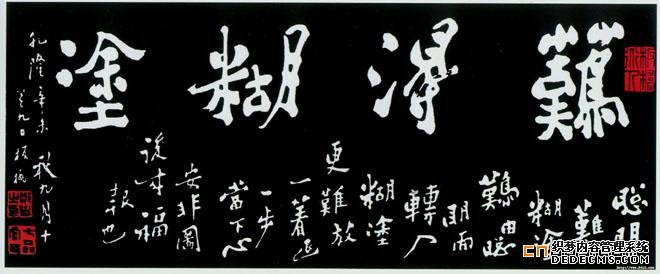 難得糊塗
聰明
難
糊塗
難由聰
明而
轉入
糊塗
更難放
一着退
一步
當下心
安非圖
後來福
報也
乾隆辛未秋九月十
九日板橋
织梦内容管理系统
DEDECMS.COM